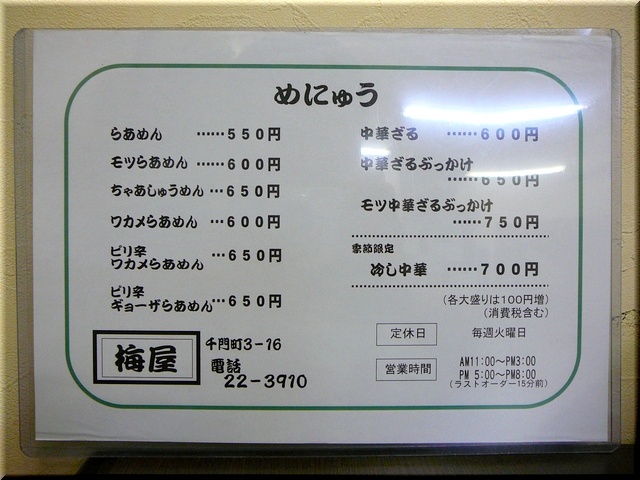 めにゅう
らあめん ……５５０円
モツらあめん …６００円
ちゃあしゅうめん …６５０円
ワカメらあめん …６００円
ピリ辛
ワカメらあめん …６５０円
ピリ辛
ギョーザらあめん …６５０円
中華ざる ……６００円
中華ざるぶっかけ
……６５０円
モツ中華ざるぶっかけ
……７５０円
季節限定
冷し中華 ……７００円
（各大盛りは１００円増）
（消費税含む）
定休日 毎週火曜日
営業時間 AM11:00～PM3:00
PM 5:00～PM8:00
（ラストオーダー15分前）
梅屋
千門町3－16
電話
22－3910